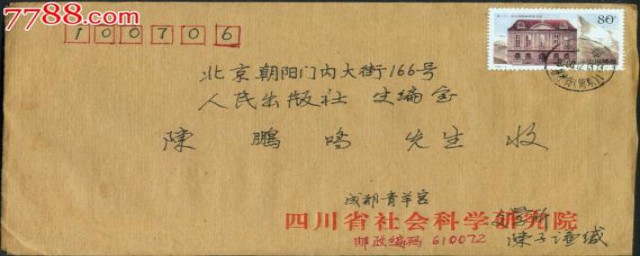 7788.com
100706
80分
北京朝阳门内大街166号
人民出版社 史编室
陳鹏鳴 先生 收
成都·青羊宫
四川省社会科学研究院
邮政编码 610072